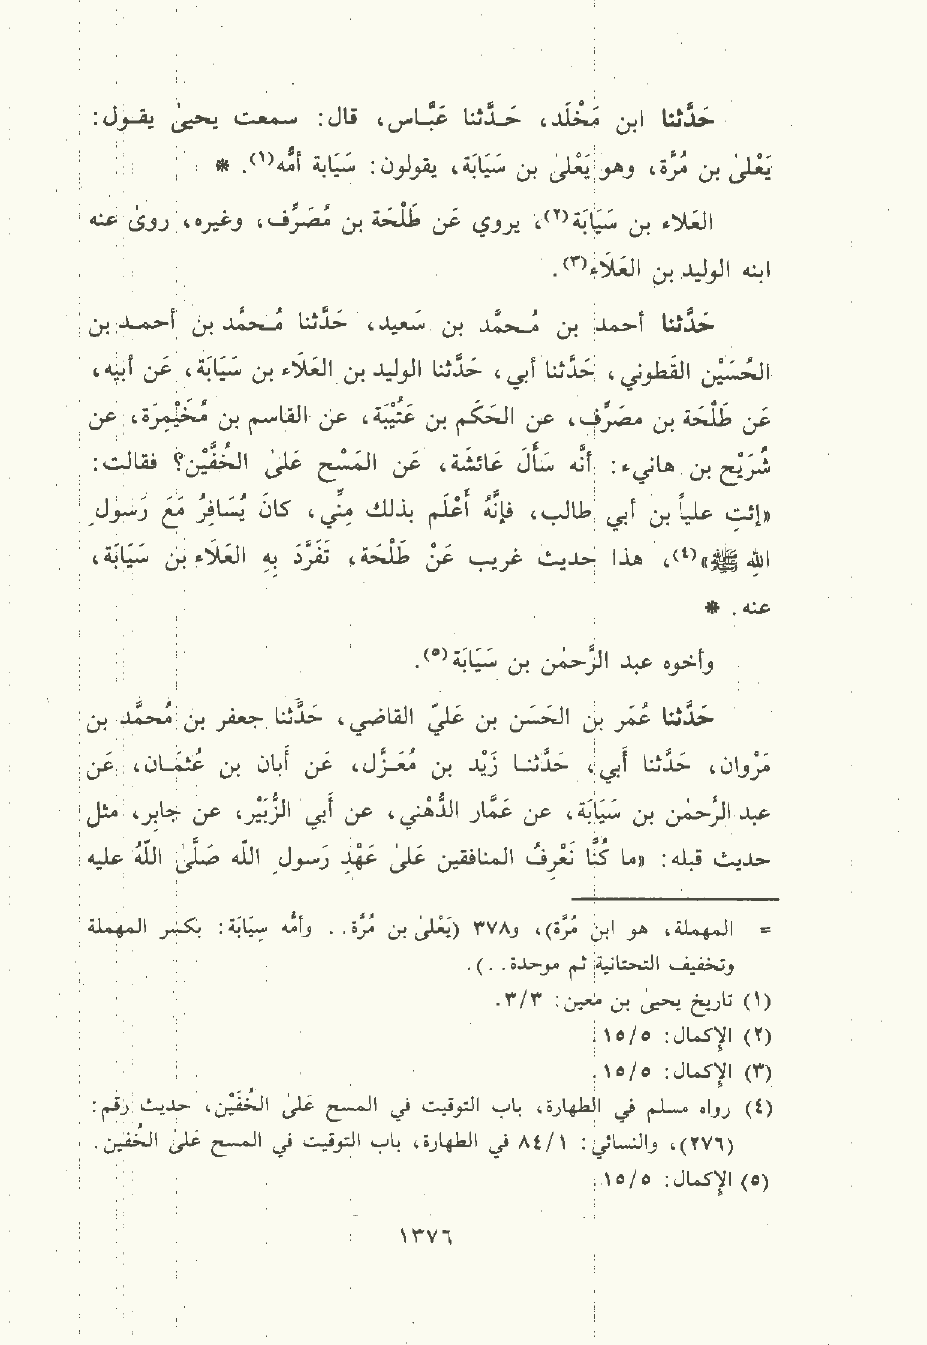 حَدَّثنا ابن مَخْلَد، حَـدَّثنا عَبَّـاس، قال: سمعت يحيىٰ يقـول:
يَعْلىٰ بن مُرَّة، وهو يَعْلىٰ بن سَيَابَة، يقولون: سَيَابة أمُّه(١). *
العَلاء بن سَيَابَة(٢)، يروي عَن طَلْحَة بن مُصَرِّف، وغيره، روىٰ عنه
ابنه الوليد بن العَلَاء(٣).
حَدَّثنا أحمد بن مُـحمَّد بن سَعيد، حَدَّثنا مُـحمَّد بن أحمـد بن
الحُسَيْن القَطوني، حَدَّثنا أبي، حَدَّثنا الوليد بن العَلَاء بن سَيَابَة، عَن أبيَه،
عَن طَلْحَة بن مصَرِّف، عن الحَكَم بن عُتَيْبَة، عن القاسم بن مُخَيْمِرَة، عن
شُرَيْح بن هانيء: أنَّه سَأَلَ عَائشَة، عَن المَسْح عَلىٰ الخُفَّيْن؟ فقالت:
«إئتِ علياً بن أبي طالب، فإنَّهُ أَعْلَم بذلك مِنِّي، كانَ يُسَافِرُ مَعَ رَسوُل
اللهِ ﷺ»(٤)، هذا حديث غريب عَنْ طَلْحَة، تَفَرَّدَ بِهِ العَلَاء بن سَيَابَة،
عنه. *
وأخوه عبد الرَّحمٰن بن سَيَابَة(٥).
حَدَّثنا عُمَر بن الحَسَن بن عَليّ القاضي، حَدَّثنا جعفر بن مُحمَّد بن
مَرْوان، حَدَّثنا أَبي، حَدَّثنـا زَيْد بن مُعَـذَّل، عَن أَبان بن عُثمَـان، عَن
عبد الرحمٰن بن سَيَابَة، عن عَمَّار الدُهْني، عن أَبي الزُّبَيْر، عن جابِر، مثل
حديث قبله: «ما كُنَّا نَعْرِفُ المنافقين عَلىٰ عَهْدِ رسوُلِ اللّه صَلَّىٰ اللّهُ عليه
= المهملة، هو ابن مُرَّة)، و٣٧٨ (يَعْلىٰ بن مُرَّة.. وأمُّه سِيَابَة: بكسر المهملة
وتخفيف التحتانية ثم موحدة..).
(١) تاريخ يحيىٰ بن معين: ٣/٣.
(٢) الإكمال: ١٥/٥.
(٣) الإكمال: ١٥/٥.
(٤) رواه مسلم في الطهارة، باب التوقيت في المسح عَلىٰ الخُفَيْن، حديث رقم:
(٢٧٦)، والنسائي: ٨٤/١ في الطهارة، باب التوقيت في المسح عَلىٰ الخُفَين.
(٥) الإكمال: ١٥/٥.
١٣٧٦